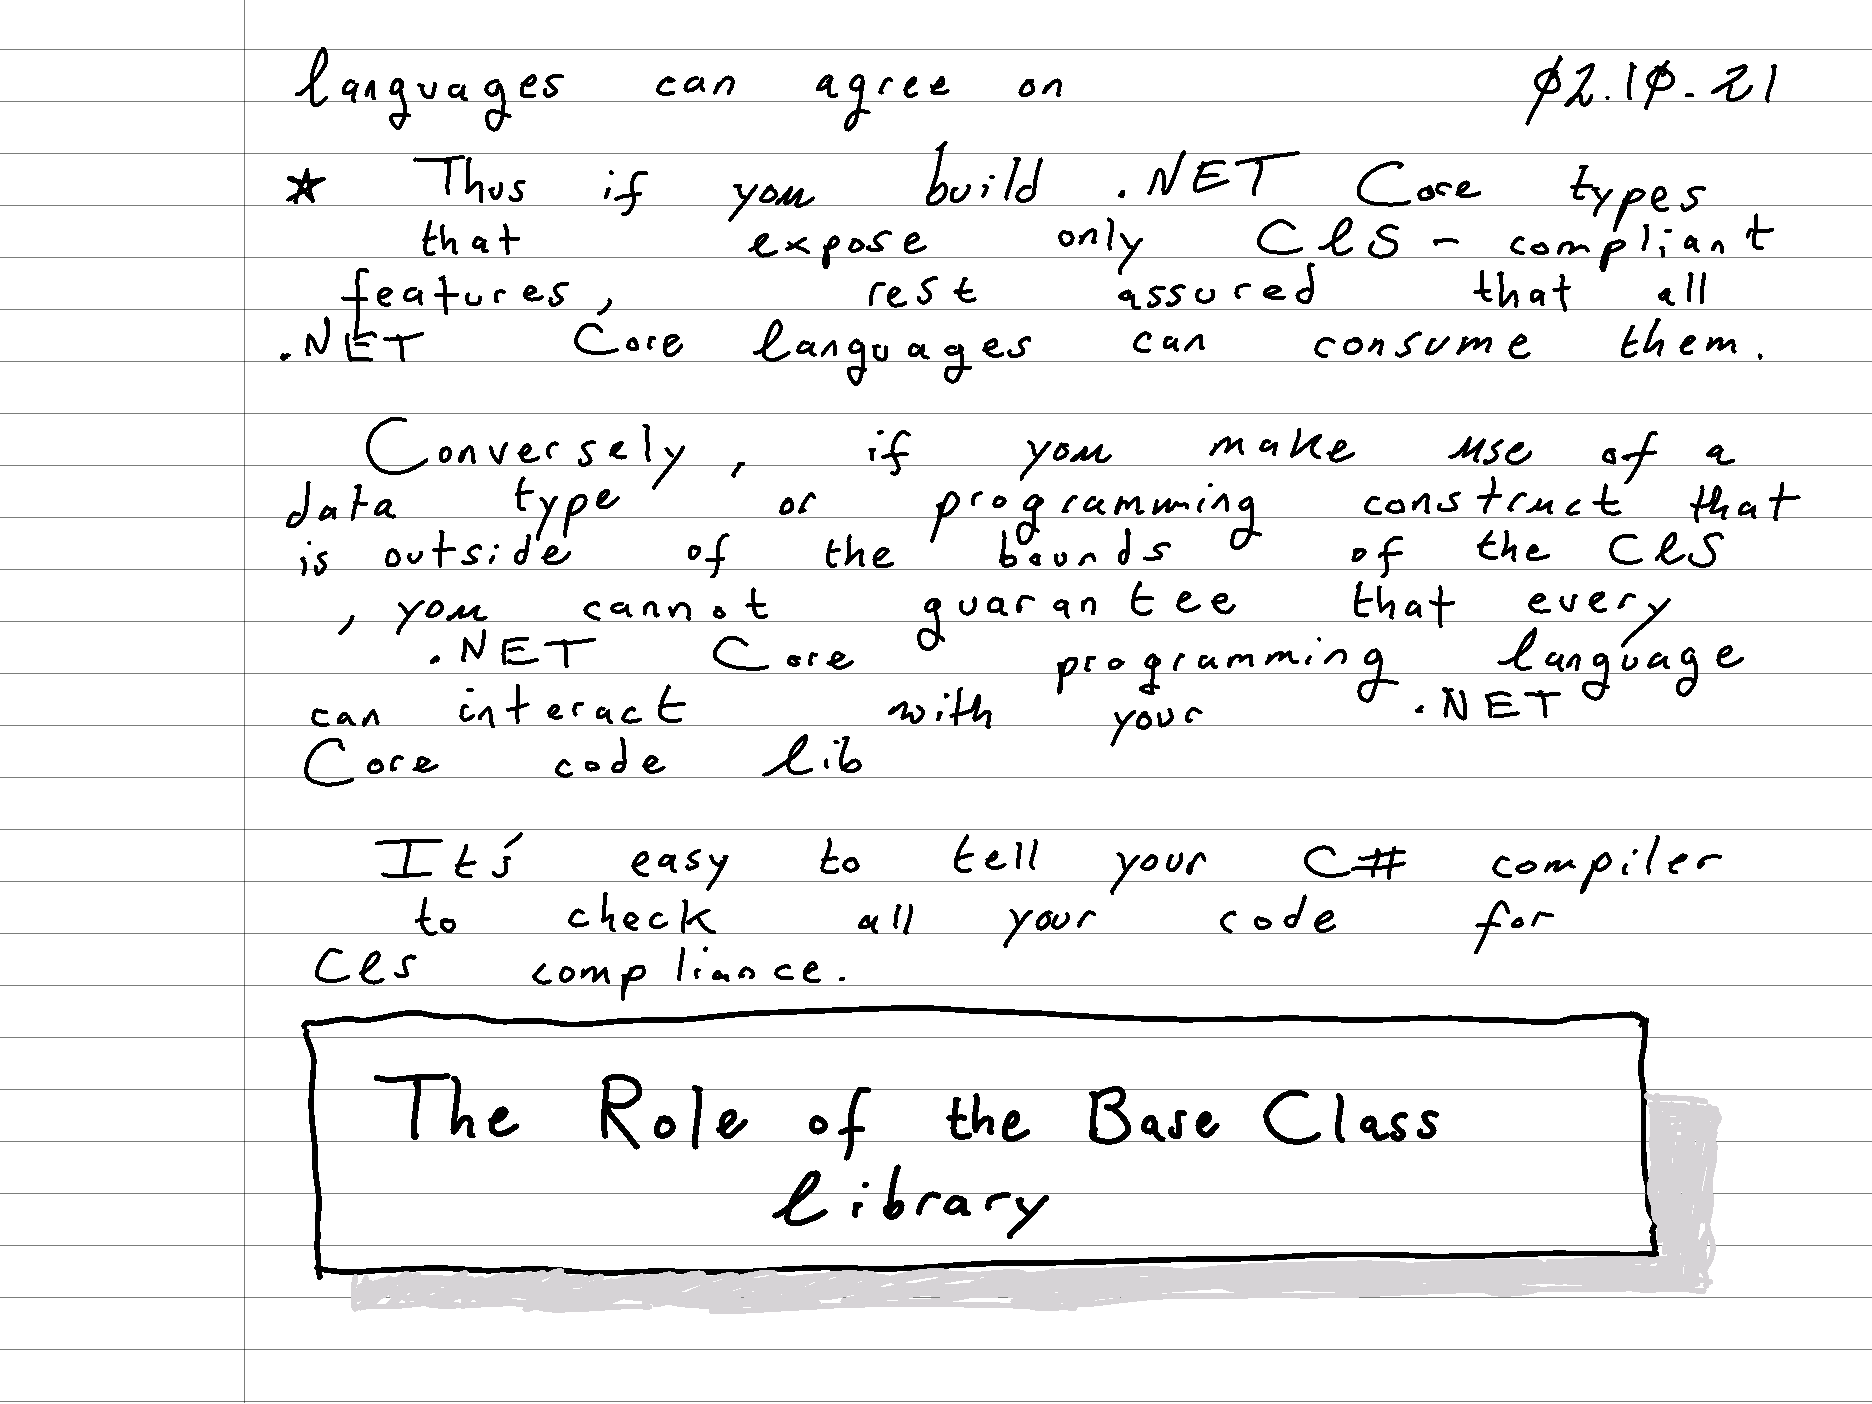 languages can agree on 02.10.21
* Thus if you build .NET Core types
that expose only CLS - compliant
features, rest assured that all
.NET Core languages can consume them.
Conversely, if you make use of a
data type or programming construct that
is outside of the bounds of the CLS
, you cannot guarantee that every
.NET Core programming language
can interact with your .NET
Core code lib
It's easy to tell your C# compiler
to check all your code for
CLS compliance.
The Role of the Base Class
Library